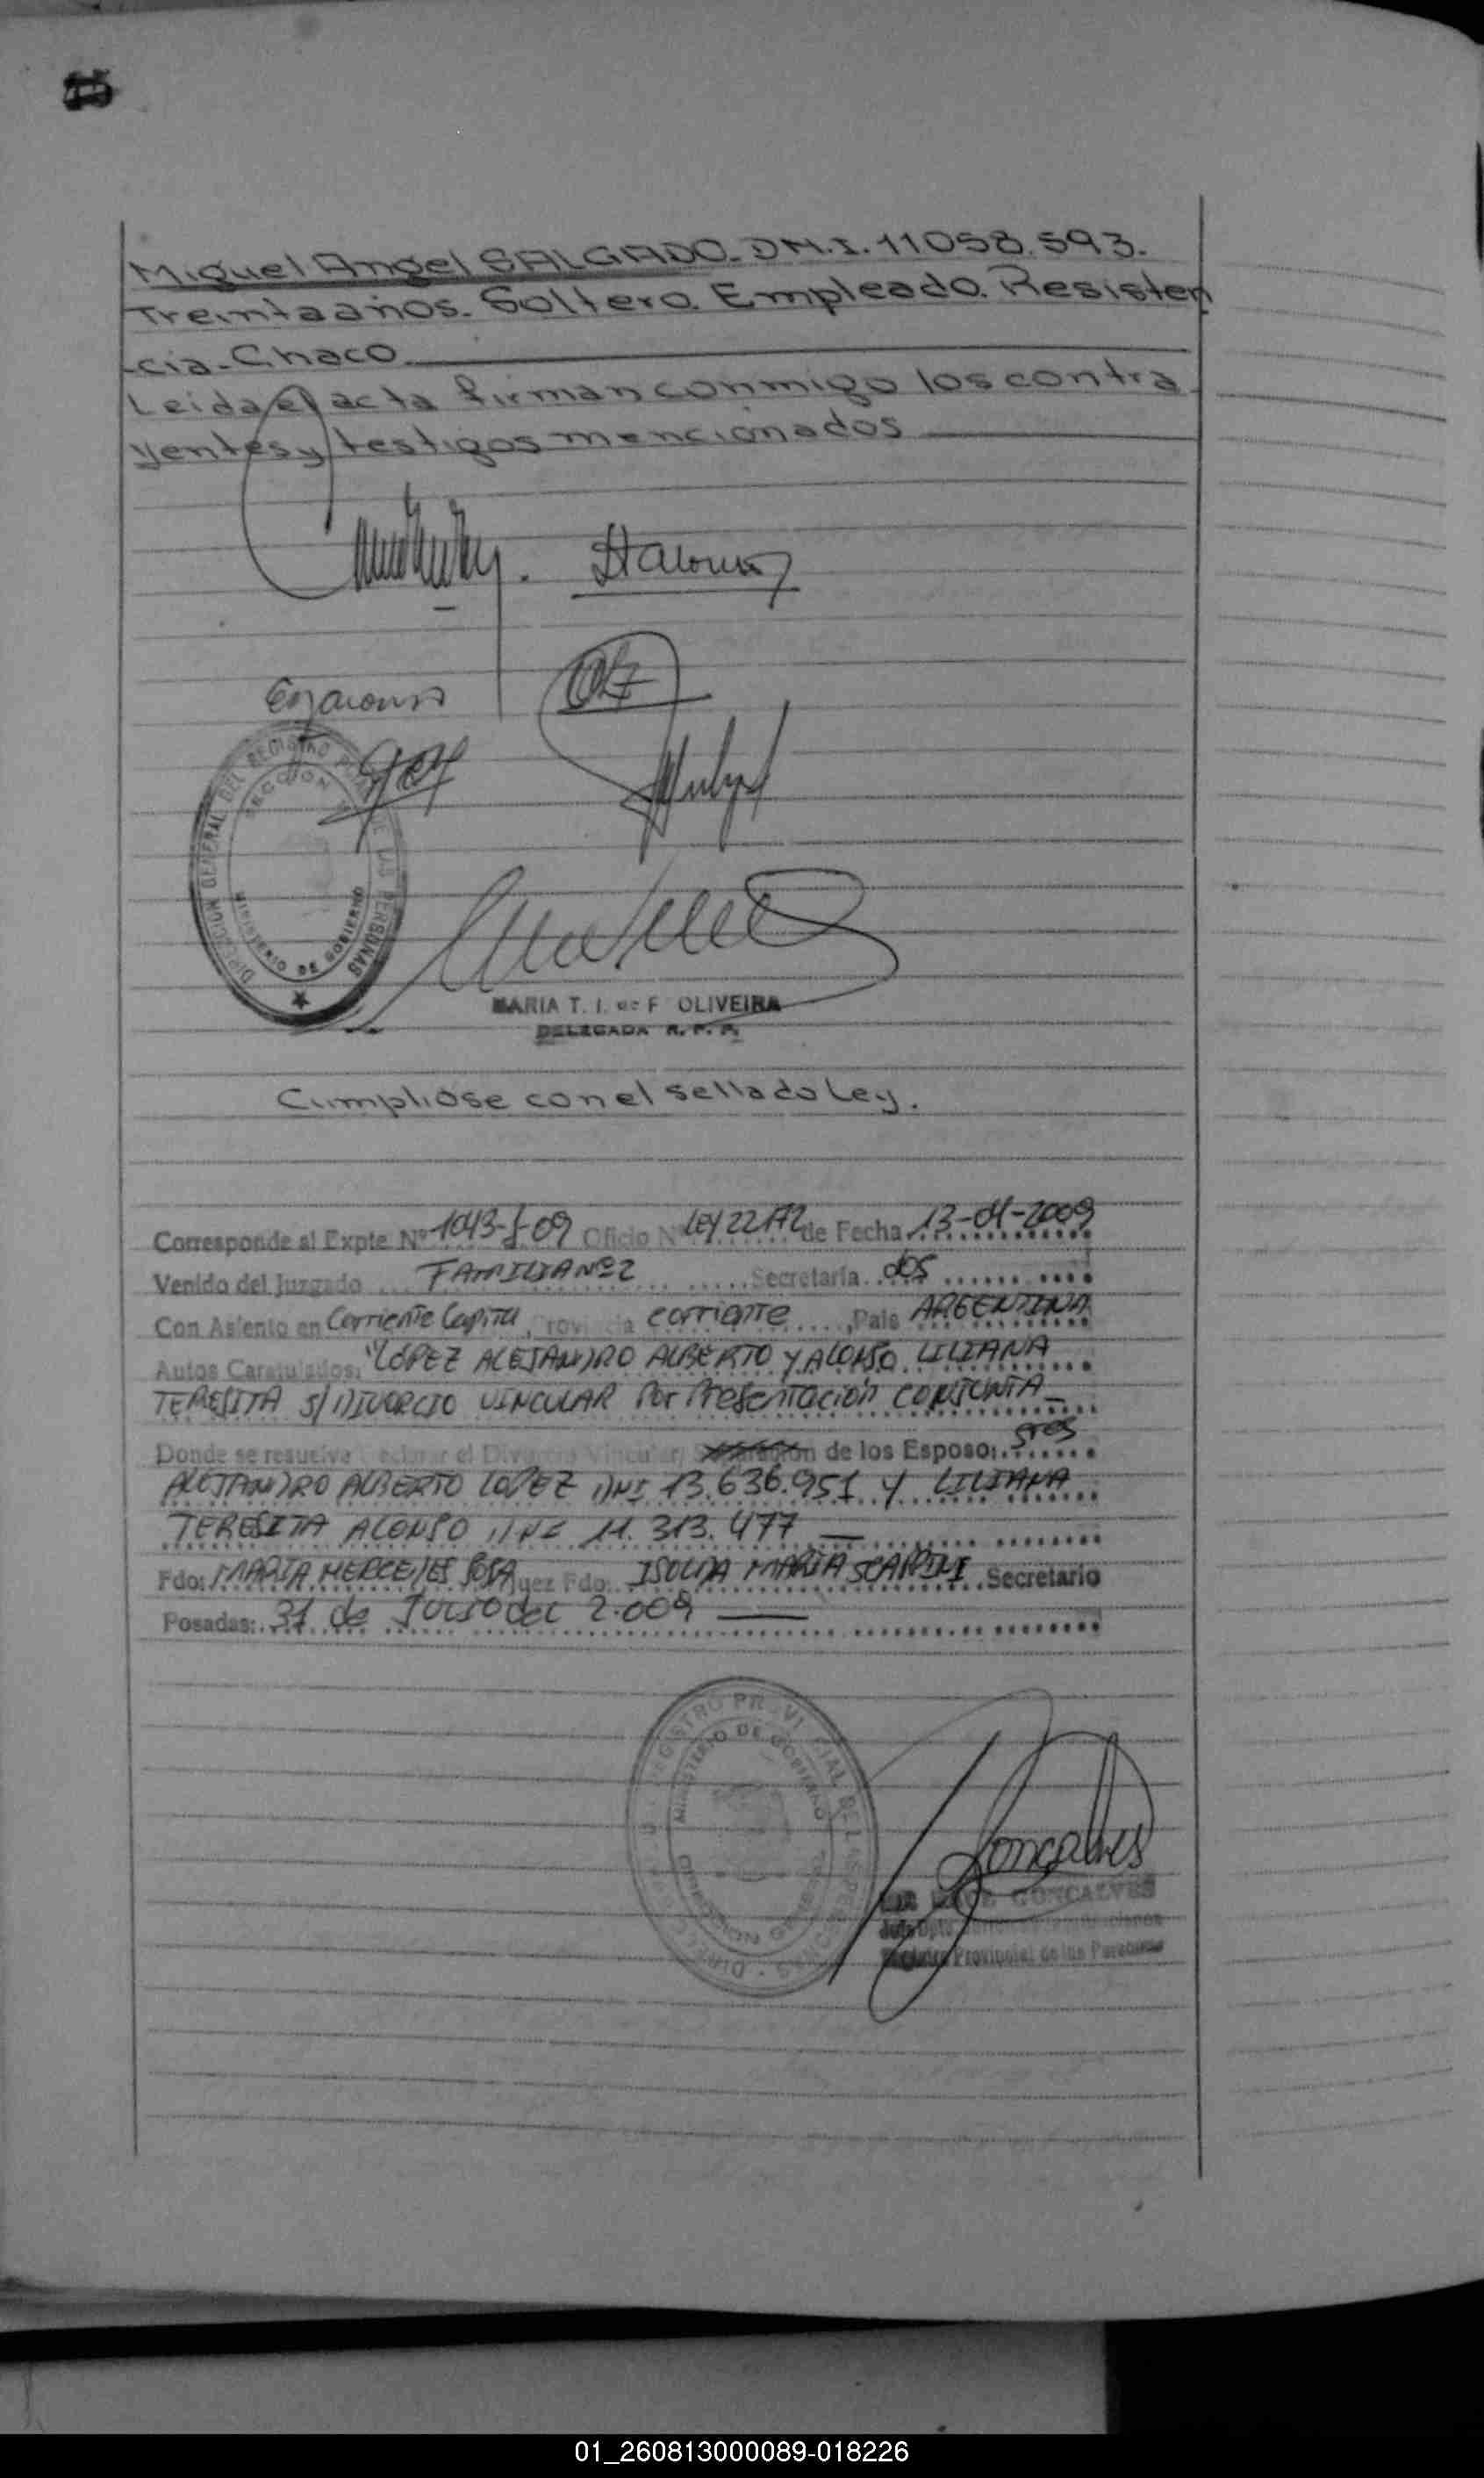 Miguel Angel SALGADO. D.N.I. 11058.593.
Treinta años. Soltero. Empleado. Resisten
-cia- Chaco
Leida el acta firman conmigo los contra
yentes y testigos mencionados
DIRECCION GENERAL DEL REGISTRO DE LAS PERSONAS
SECCION
MINISTERIO DE GOBIERNO
MARIA T. I. de F. OLIVEIRA
DELEGADA R. P. P.
Cumplióse con el sellado Ley.
Corresponde al Expte Nº 1043-09 Oficio Nº LEY 22172 de Fecha 13-04-2009
Venido del Juzgado FAMILIA Nº 2 Secretaría dos
Con Asiento en Corriente Capital, Provincia corriente, País ARGENTINA
Autos Caratulados, "LÓPEZ ALEJANDRO ALBERTO Y ALONSO LILIANA
TERESITA S/DIVORCIO VINCULAR Por Presentación CONJUNTA_
Donde se resuelve Declarar el Divorcio Vincular/ Separación de los Esposo: sres
ALEJANDRO ALBERTO LOPEZ DNI 13.636.951 Y LILIANA
TERESITA ALONSO DNI 11.313.477
Fdo: MARIA MERCEDES SOSA Juez Fdo: ISOLDA MARIA SCARPINI Secretario
Posadas: 31 de Julio del 2.009
REGISTRO PROVINCIAL DE LAS PERSONAS
MINISTERIO DE GOBIERNO
Goncalves
GONCALVES
Registro Provincial de las Personas
01_260813000089-018226